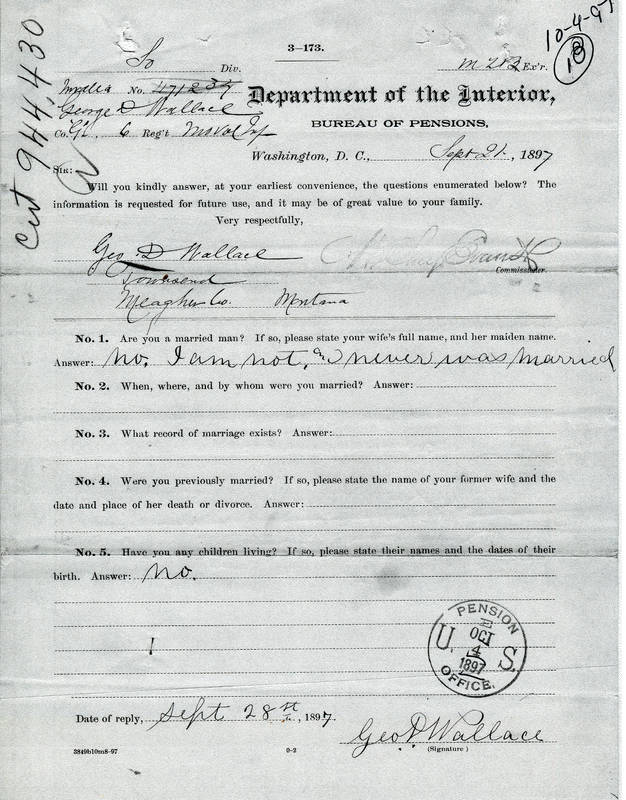 10-4-97
18
3—173.
So Div.
M 212 Ex'r.
Cert 944,430
Invalid No. 471235
Department of the Interior,
George D Wallace
Co. G, 6 Reg't Mo Vol Inf
BUREAU OF PENSIONS,
Washington, D. C., Sept 21, 1897
SIR:
Will you kindly answer, at your earliest convenience, the questions enumerated below? The
information is requested for future use, and it may be of great value to your family.
Very respectfully,
Geo D Wallace
Evans
Commissioner.
Townsend
Meagher Co. Montana
No. 1. Are you a married man? If so, please state your wife's full name, and her maiden name.
Answer: No. I am not, & never was married
No. 2. When, where, and by whom were you married? Answer:
No. 3. What record of marriage exists? Answer:
No. 4. Were you previously married? If so, please state the name of your former wife and the
date and place of her death or divorce. Answer:
No. 5. Have you any children living? If so, please state their names and the dates of their
birth. Answer: No.
PENSION
E
OCT
U. 4 S.
1897
OFFICE.
Date of reply, Sept 28th, 1897.
Geo D Wallace
(Signature)
3849b10m8-97 0-2